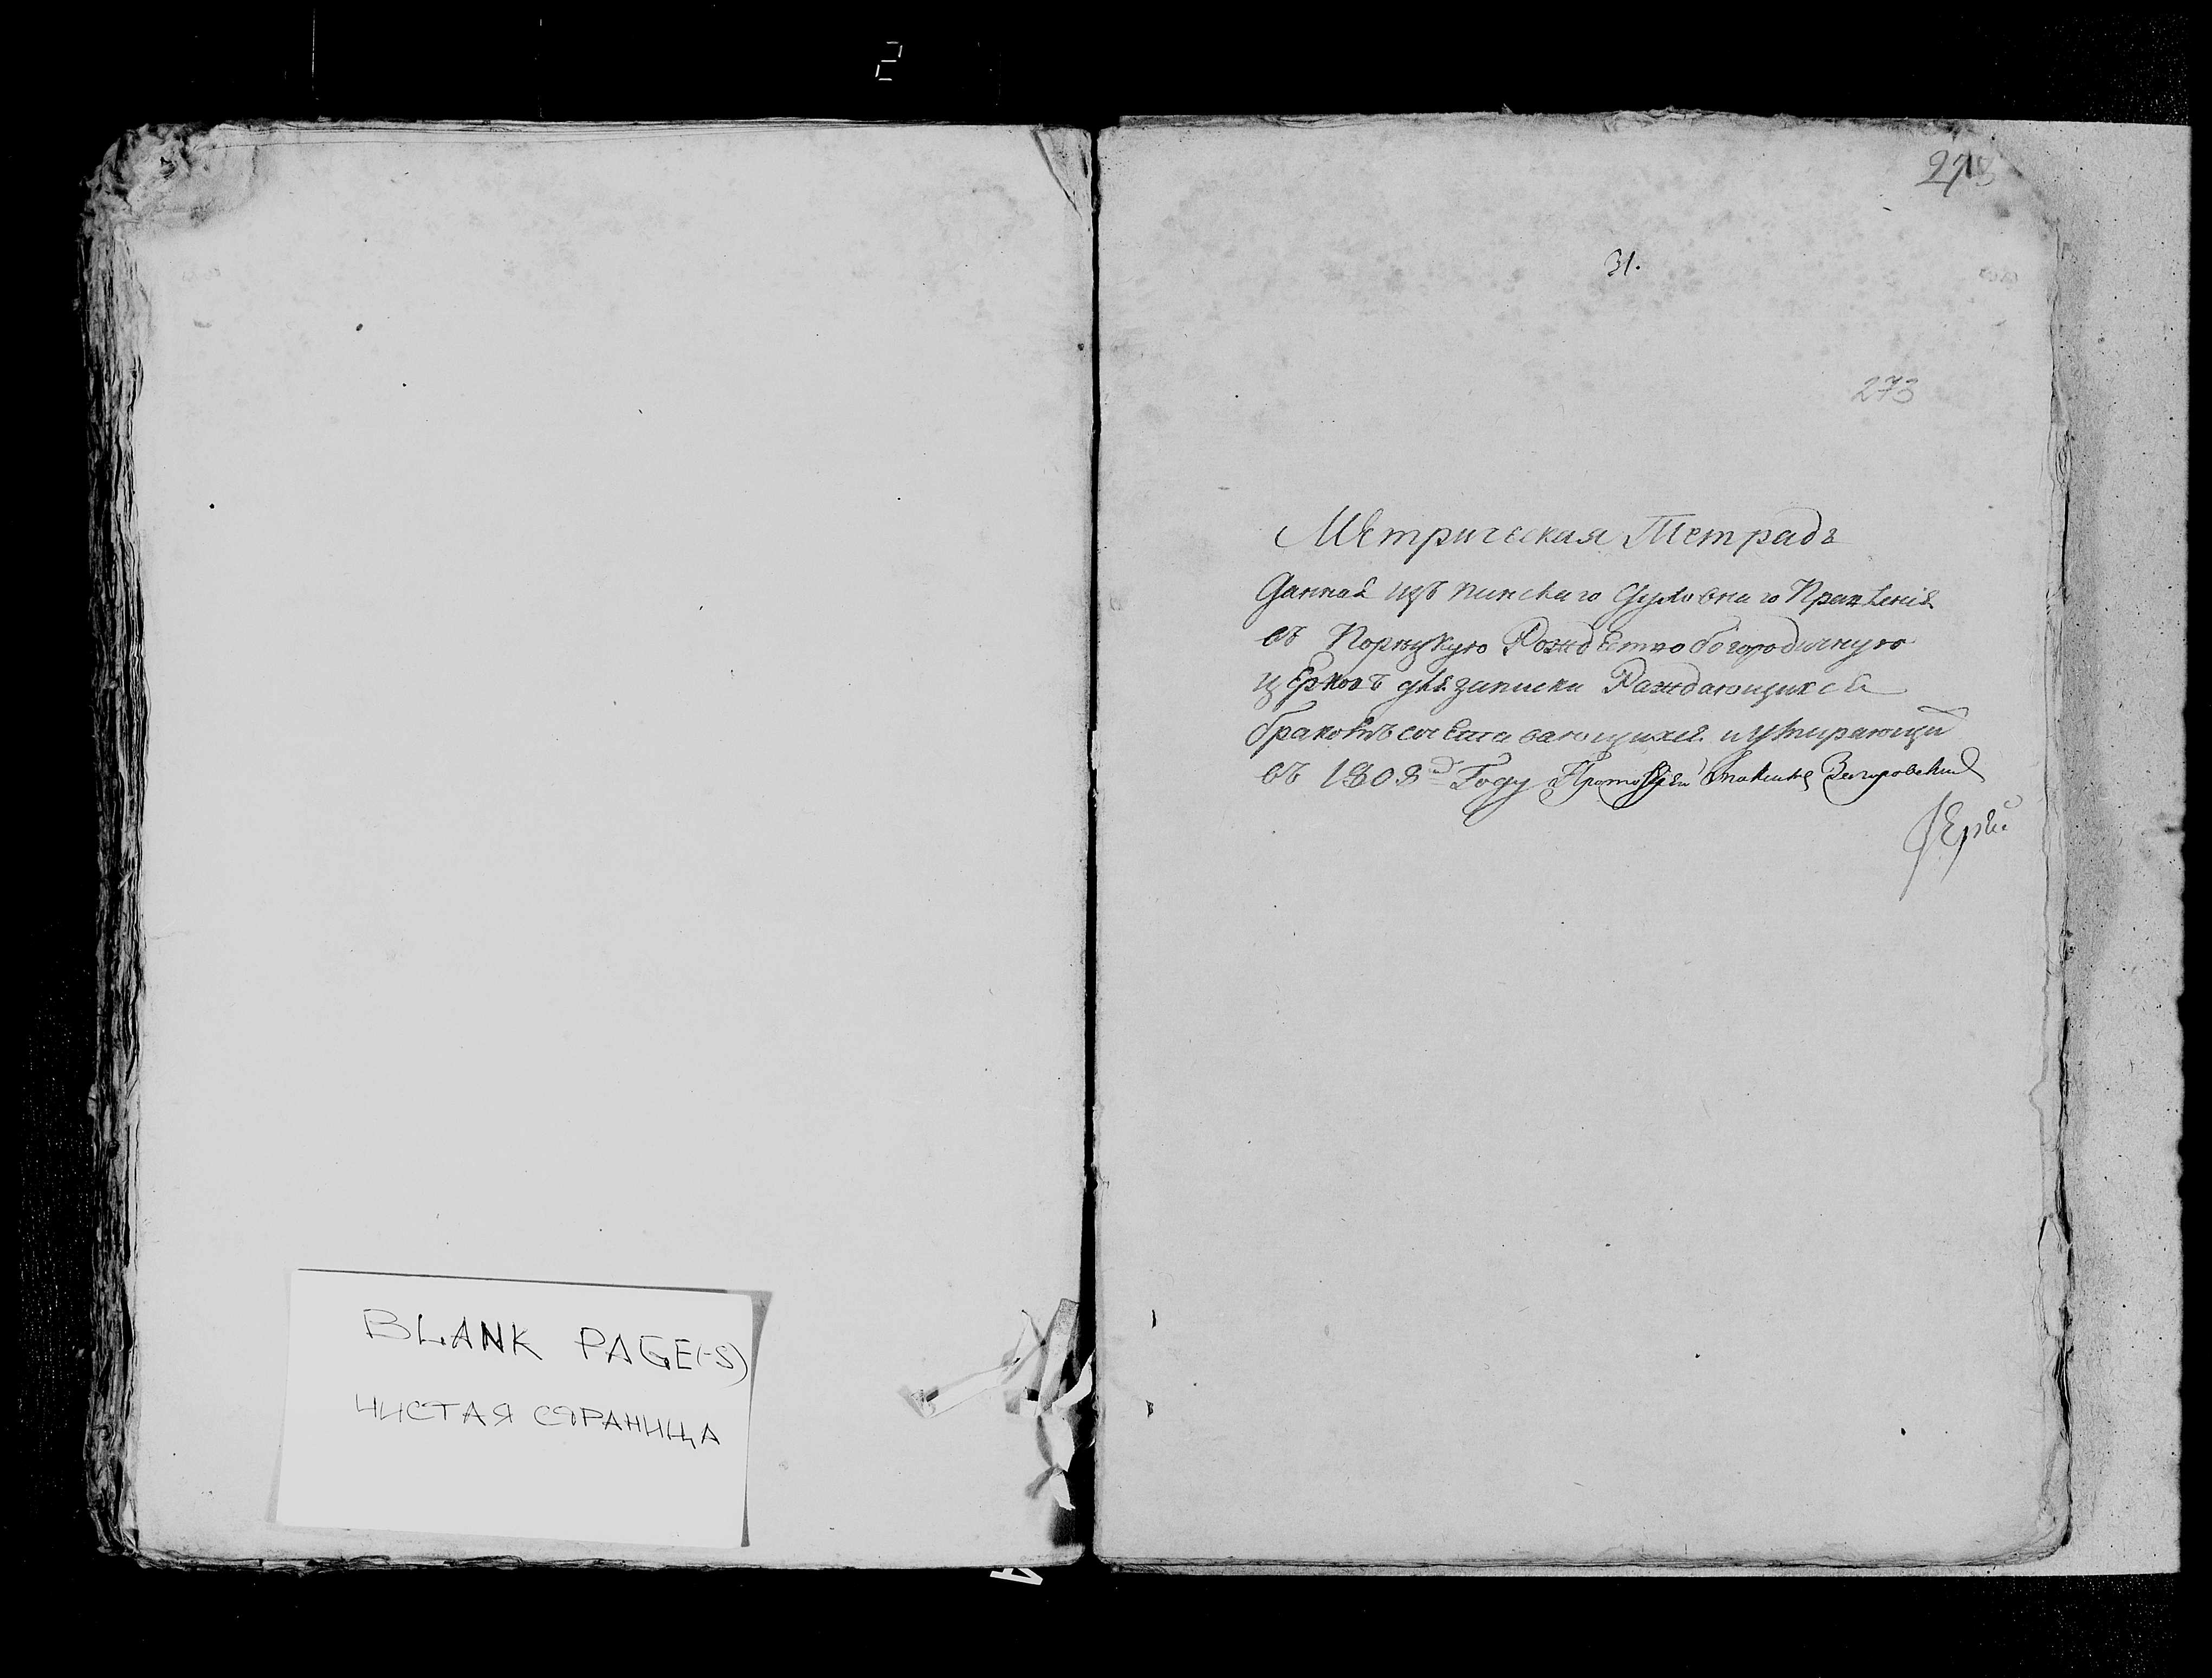 2
BLANK PAGE(-S)
ЧИСТАЯ СТРАНИЦА
273
31.
273
Метрическая Тетрадь
Данная изъ пинскаго Духовнаго Правленія
въ Порѣцкую Рождество богородичную
церковъ для записки Раждающихся
бракомъ сочетавающихся и умирающи
въ 1808 Году Протоіерей Загоровский
Іерей